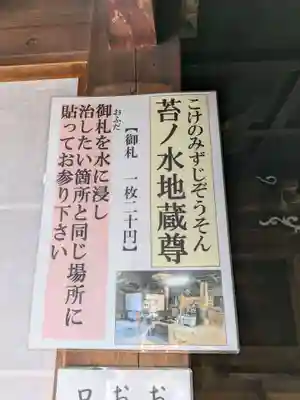 こけのみずじぞうそん
苔ノ水地蔵尊
【御札 一枚二十円】
おふだ
御札を水に浸し
治したい箇所と同じ場所に
貼ってお参り下さい
お
お